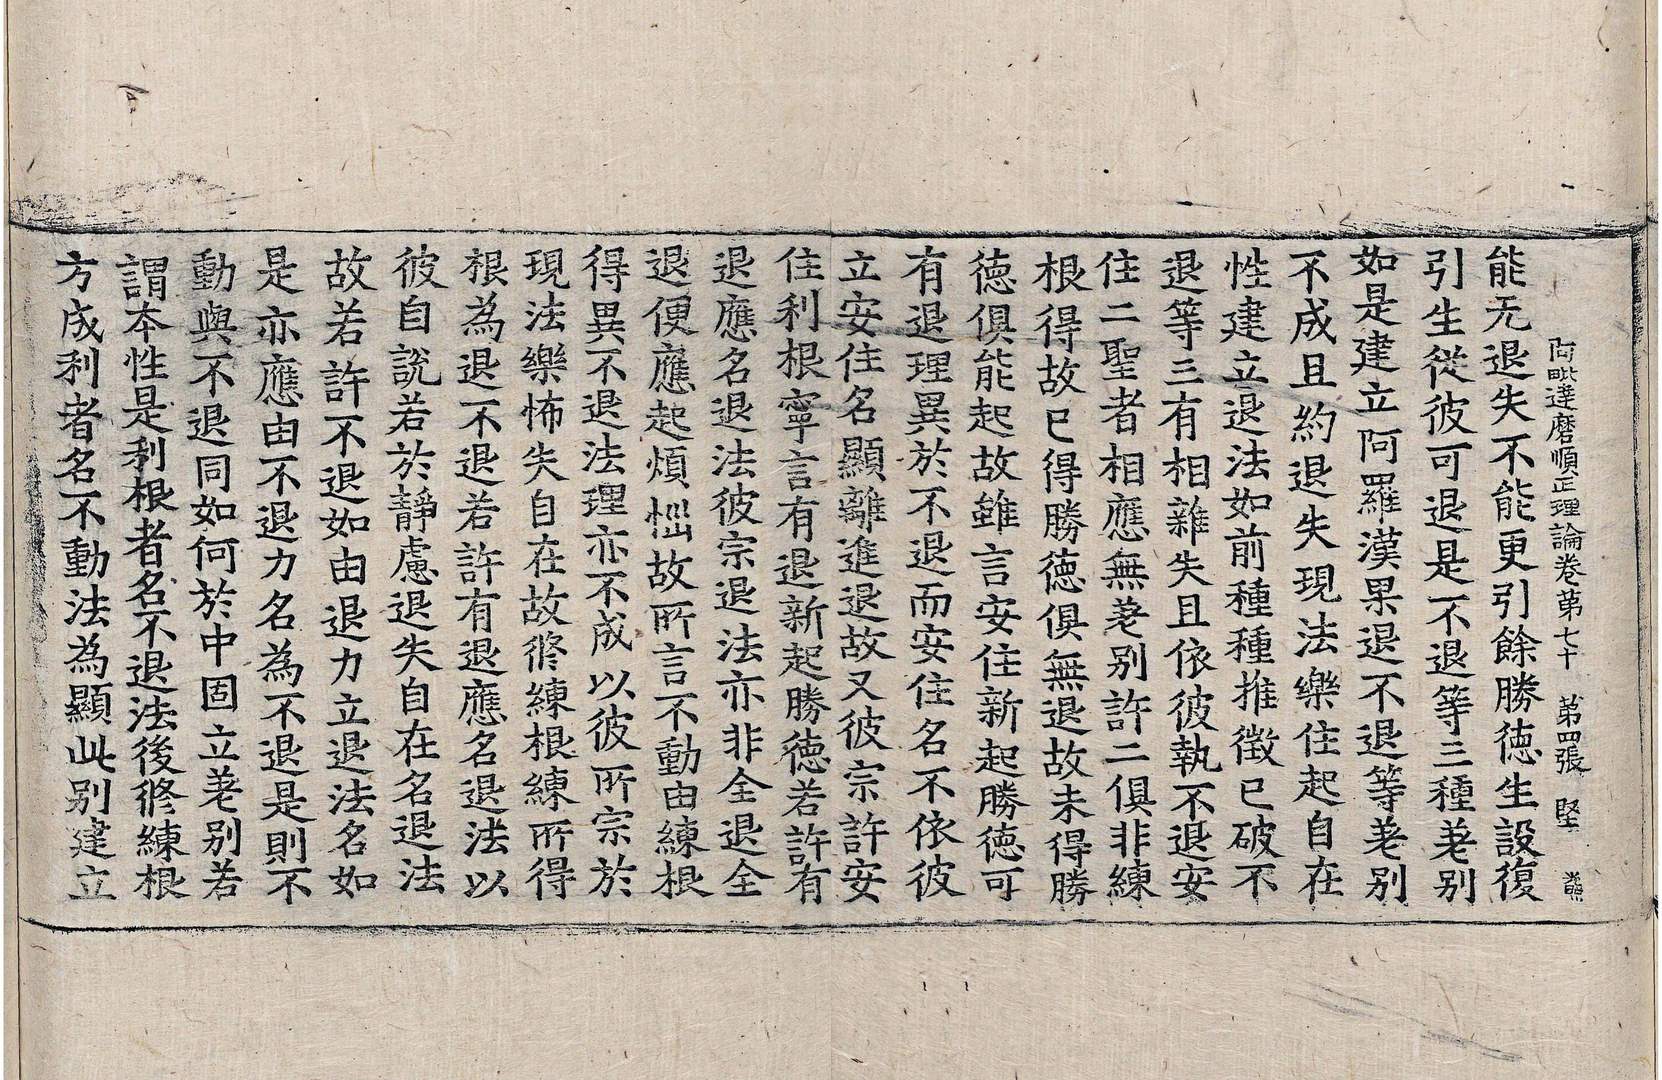 阿毗達磨順正理論卷第七十　第四張　堅
能无退失不能更引餘勝徳生設復
引生從彼可退是不退等三種差别
如是建立阿羅漢果退不退等差别
不成且約退失現法樂住起自在
性建立退法如前種種推徵已破不
退等三有相雜失且依彼執不退安
住二聖者相應無差别許二俱非練
根得故已得勝徳俱無退故未得勝
徳俱能起故雖言安住新起勝徳可
有退理異於不退而安住名不依彼
立安住名顯離進退故又彼宗許安
住利根寧言有退新起勝徳若許有
退應名退法彼宗退法亦非全退全
退便應起煩惱故所言不動由練根
得異不退法理亦不成以彼所宗於
現法樂怖失自在故修練根練所得
根為退不退若許有退應名退法以
彼自說若於靜慮退失自在名退法
故若許不退如由退力立退法名如
是亦應由不退力名為不退是則不
動與不退同如何於中固立差别若
謂本性是利根者名不退法後修練根
方成利者名不動法為顯此别建立